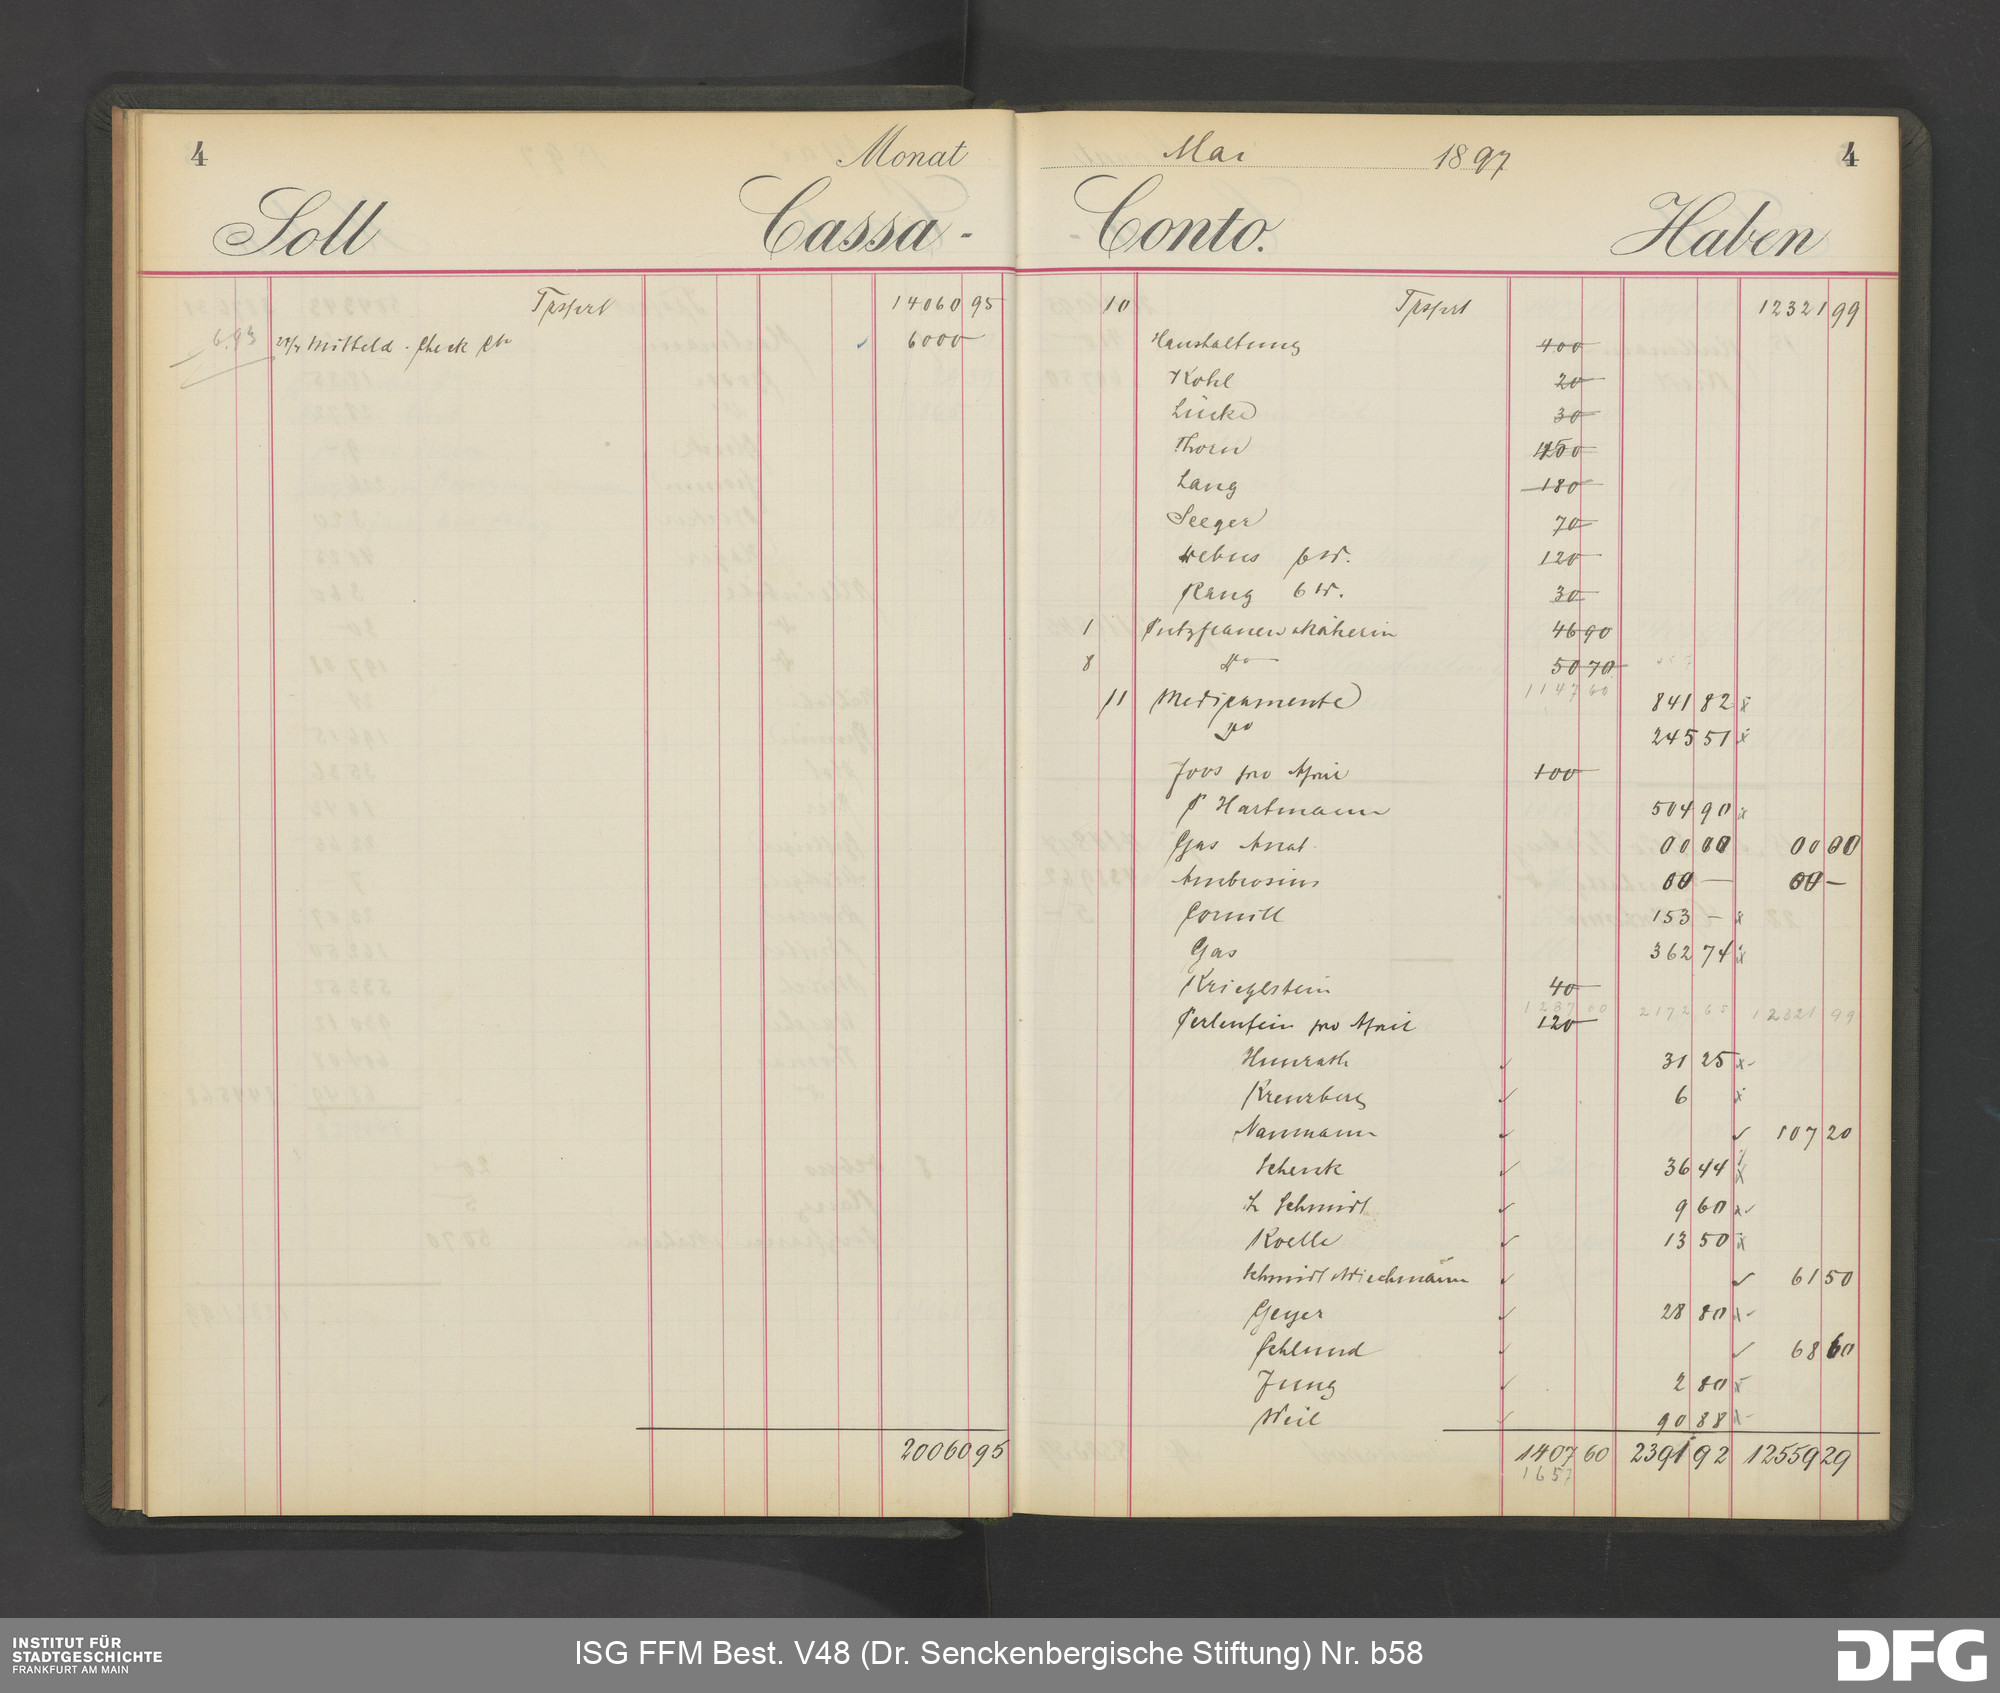 4 Monat Mai 1897 4
Soll Cassa - Conto. Haben
Trsprt 14060 95
6.93 Mitteld. Check Cto 6000 —
10 Trsprt 12321 99
Haushaltung 400 —
Kohl 20 —
Lücke 30 —
Thorn 150 —
Lang 180 —
Seeger 70 —
Debus 6 W. 120 —
Rang 6 W. 30 —
1 Putzfrauen Näherin 46 90
8 do 50 70
1147 60
11 Medicamente 841 82 x
do 245 51 x
Joos pro April 100 —
P Hartmann 504 90 x
Gas Anat. 00 00 00 00
Ambrosius 00 — 00 —
Cornill 153 — x
Gas 362 74 x
Krieglstein 40 —
1287 60 2172 65 12321 99
Perlenfein pro April 120 —
Hunrath ✓ 31 25 x
Kreuzberg ✓ 6 x
Naumann ✓ ✓ 107 20
Schenk ✓ 36 44 x
L Schmidt ✓ 9 60 x
Koelle ✓ 13 50 x
Schmidt Wiechmann ✓ ✓ 61 50
Geyer ✓ 28 80 x
Schlund ✓ ✓ 68 60
Jung ✓ 2 80 x
Weil ✓ 90 88 x
20060 95
1407 60 2391 92 12559 29
1657
INSTITUT FÜR
STADTGESCHICHTE
FRANKFURT AM MAIN
ISG FFM Best. V48 (Dr. Senckenbergische Stiftung) Nr. b58
DFG